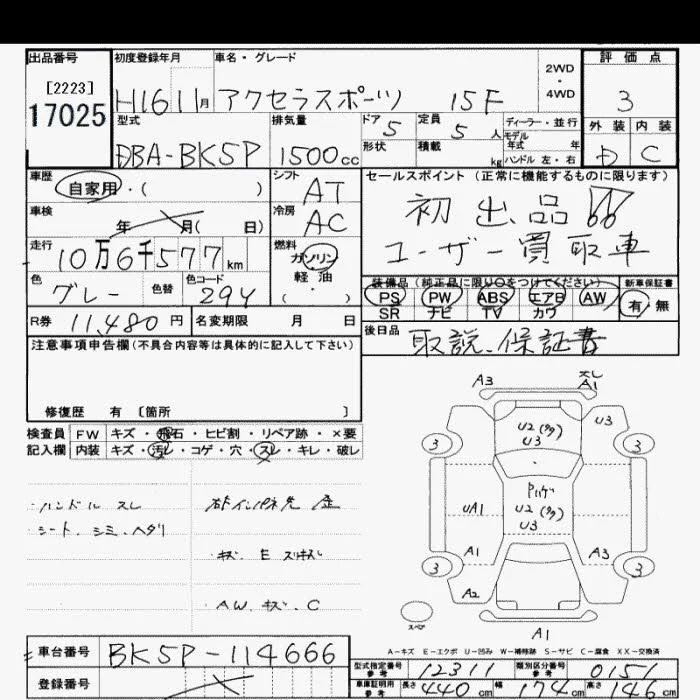 出品番号 初度登録年月 車名・グレード 2WD・4WD 評価点
[2223]
17025
H16 11月 アクセラスポーツ 15F 3
型式 排気量 ドア 5 定員 5人 ディーラー・並行 外装 内装
DBA-BK5P 1500cc 形状 積載 kg モデル年式 年 D C
ハンドル 左・右
車歴 シフト セールスポイント (正常に機能するものに限ります)
自家用・( ) AT
車検 冷房 初出品
年 月( 日) AC ユーザー買取車
走行 燃料
10万6千577km ガソリン・軽油・( )
色 色替 色コード 装備品(純正品に限り○をつけてください) 新車保証書
グレー 29Y PS PW ABS エアB AW 有・無
SR ナビ TV カワ
R券 11,480円 名変期限 月 日 後日品 取説、保証書
注意事項申告欄(不具合内容等は具体的に記入して下さい)
修復歴 有 〔箇所 〕
検査員 FW キズ・飛石・ヒビ割・リペア跡・×要
記入欄 内装 キズ・汚レ・コゲ・穴・スレ・キレ・破レ
・ハンドル スレ
・シート、シミ・ヘタリ
・キズ E
・AW、キズ、C
A3 A1
U2 (多) U3
U3
3 3
UA1 U2 (多)
U3
A1 A3
3 3
A2
スペア
A1
A-キズ E-エクボ U-凹み W-補修跡 S-サビ C-腐食 XX-交換済
車台番号 BK5P-114666
登録番号
型式指定番号 参考 12311 類別区分番号 参考 0151
車庫証明用 参考 長さ 440cm 幅 174cm 高さ 146cm